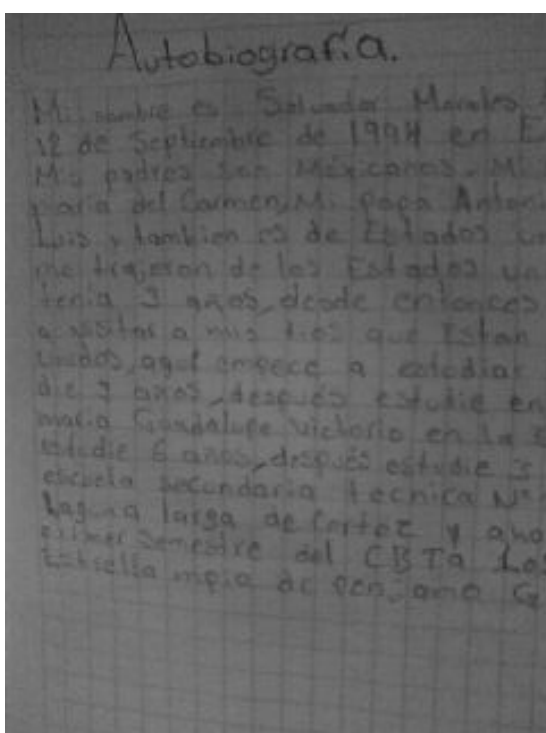 Autobiografia.
Mi nombre es Salvador Morales
12 de Septiembre de 1994 en E
Mis padres son Méxicanos. Mi
maria del Carmen, Mi papa Antoni
Luis y tambien es de Estados un
me trajeron de los Estados un
tenia 3 años, desde entonces
a visitar a mis tios que Estan
unidos, aqui empece a estudiar
die 3 años, después estudie en
maria Guadalupe victoria en la E
estudie 6 años, después estudie 3
escuela secundaria tecnica Nº
Laguna larga de Cortez y aho
primer semestre del CBTA Los
Estrella mpio de Penjamo G